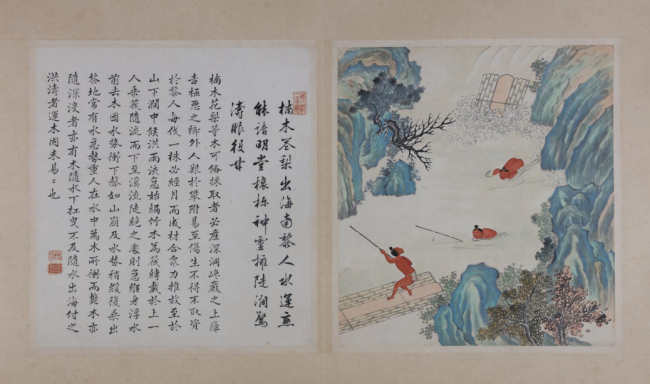 楠木花梨出海南黎人水運亦
能諳明堂榱棟神靈擁陡澗驚
濤眼役廿
楠木花梨等木可俻採取者必產深洞峻巖之上瘴
毒極惡之鄉外人艱於攀附易至傷生不得不取資
於黎人每伐一株必經月而成材合衆力推放至於
山下澗中候洪雨流急始編竹木為筏縛載於上一
人乘筏隨流而下至溪流陡絕之處則急縱身浮水
前去木因水勢衝下聲如山崩及水勢稍緩復乘出
黎地常有水急勢重人在水中為木所衝而斃木亦
隨深沒者亦有木隨水下扛曳不及隨水出海付之
洪濤者運木固未易〻也